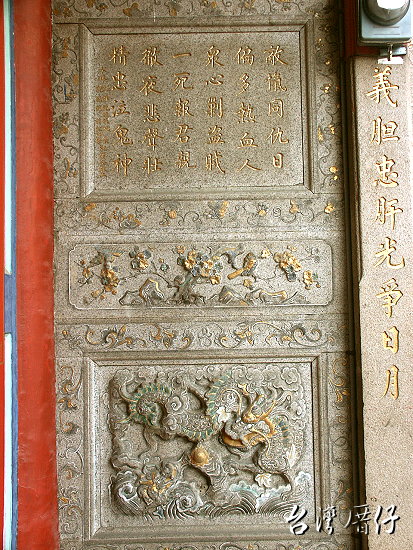 敵愾同仇日
偏多熱血人
眾心剿盜賊
一死報君親
徹夜悲聲壯
精忠泣鬼神
義胆忠肝光爭日月
台灣厝仔